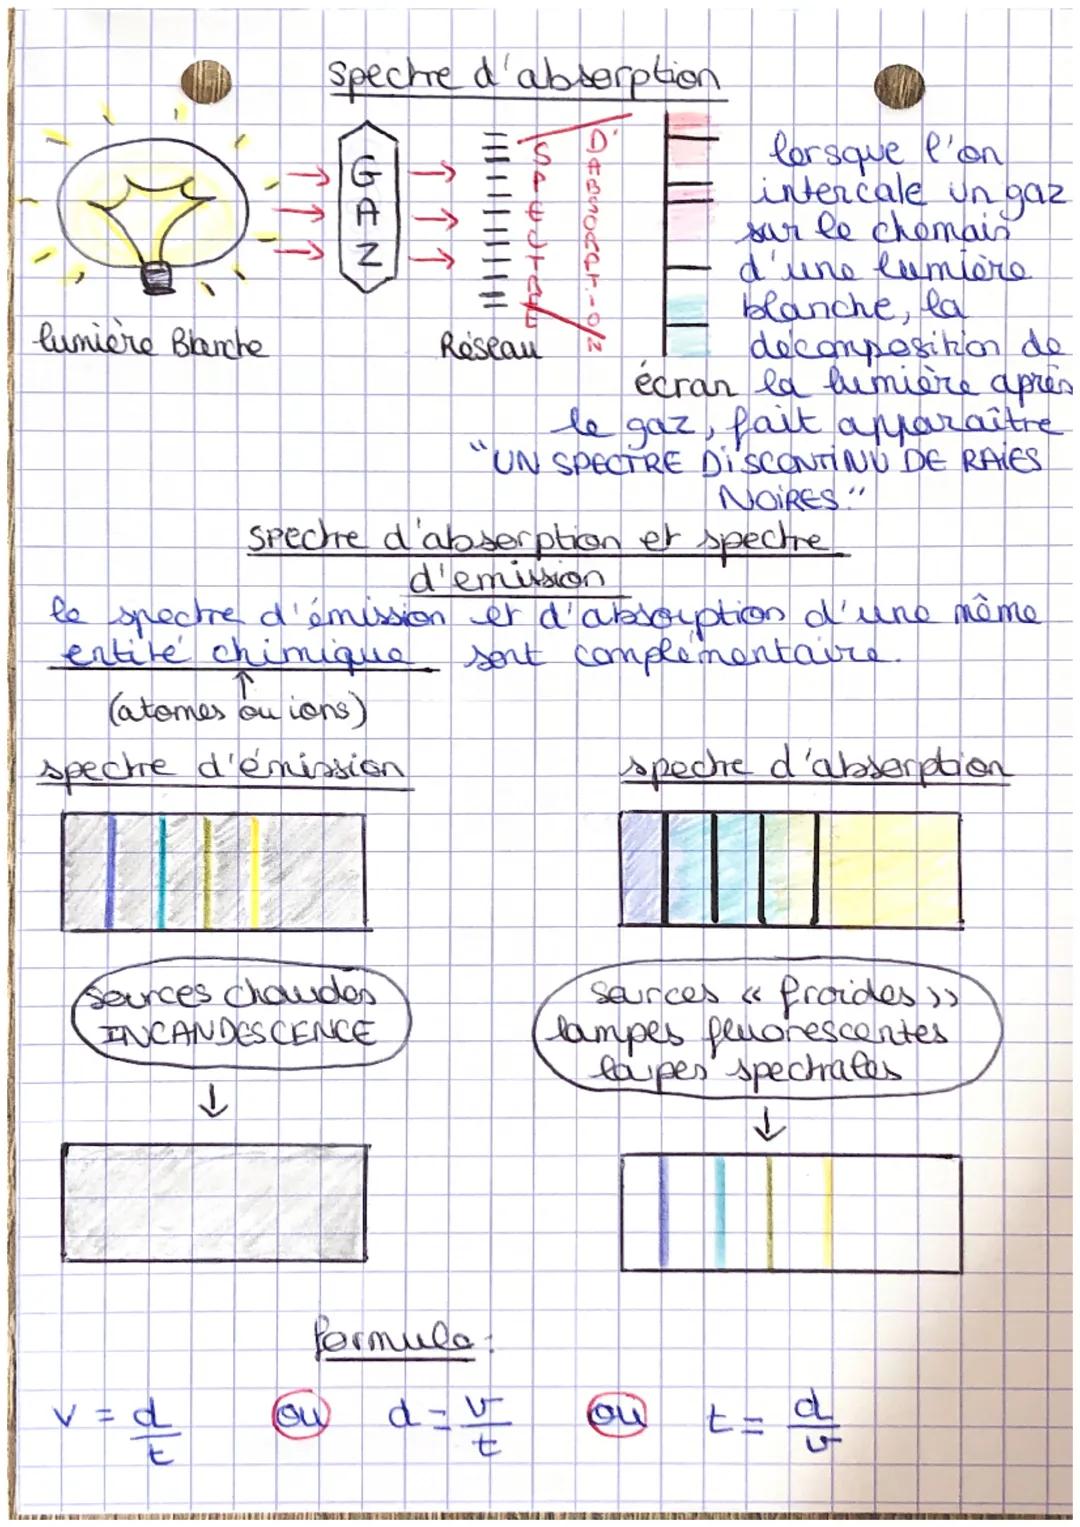 spectre d'absorption
GAZ
SPECTRE
D'ABSORPTION
lumière Blanche
Réseau
écran
lorsque l'on
intercale un gaz
sur le chemain
d'une lumière
blanche, la
décomposition de
la lumière après
le gaz, fait apparaître
"UN SPECTRE DiSCONTiNU DE RAiES
NOiRES."
spectre d'absorption et spectre
d'emission
le spectre d'émission et d'absorption d'une même
entité chimique sont complémentaire.
(atomes ou ions)
spectre d'émission
spectre d'absorption
sources chaudes
INCANDESCENCE
sources « froides »
lampes fluorescentes
lapes spectrales
formule:
v = d/t ou d = v/t ou t = d/v